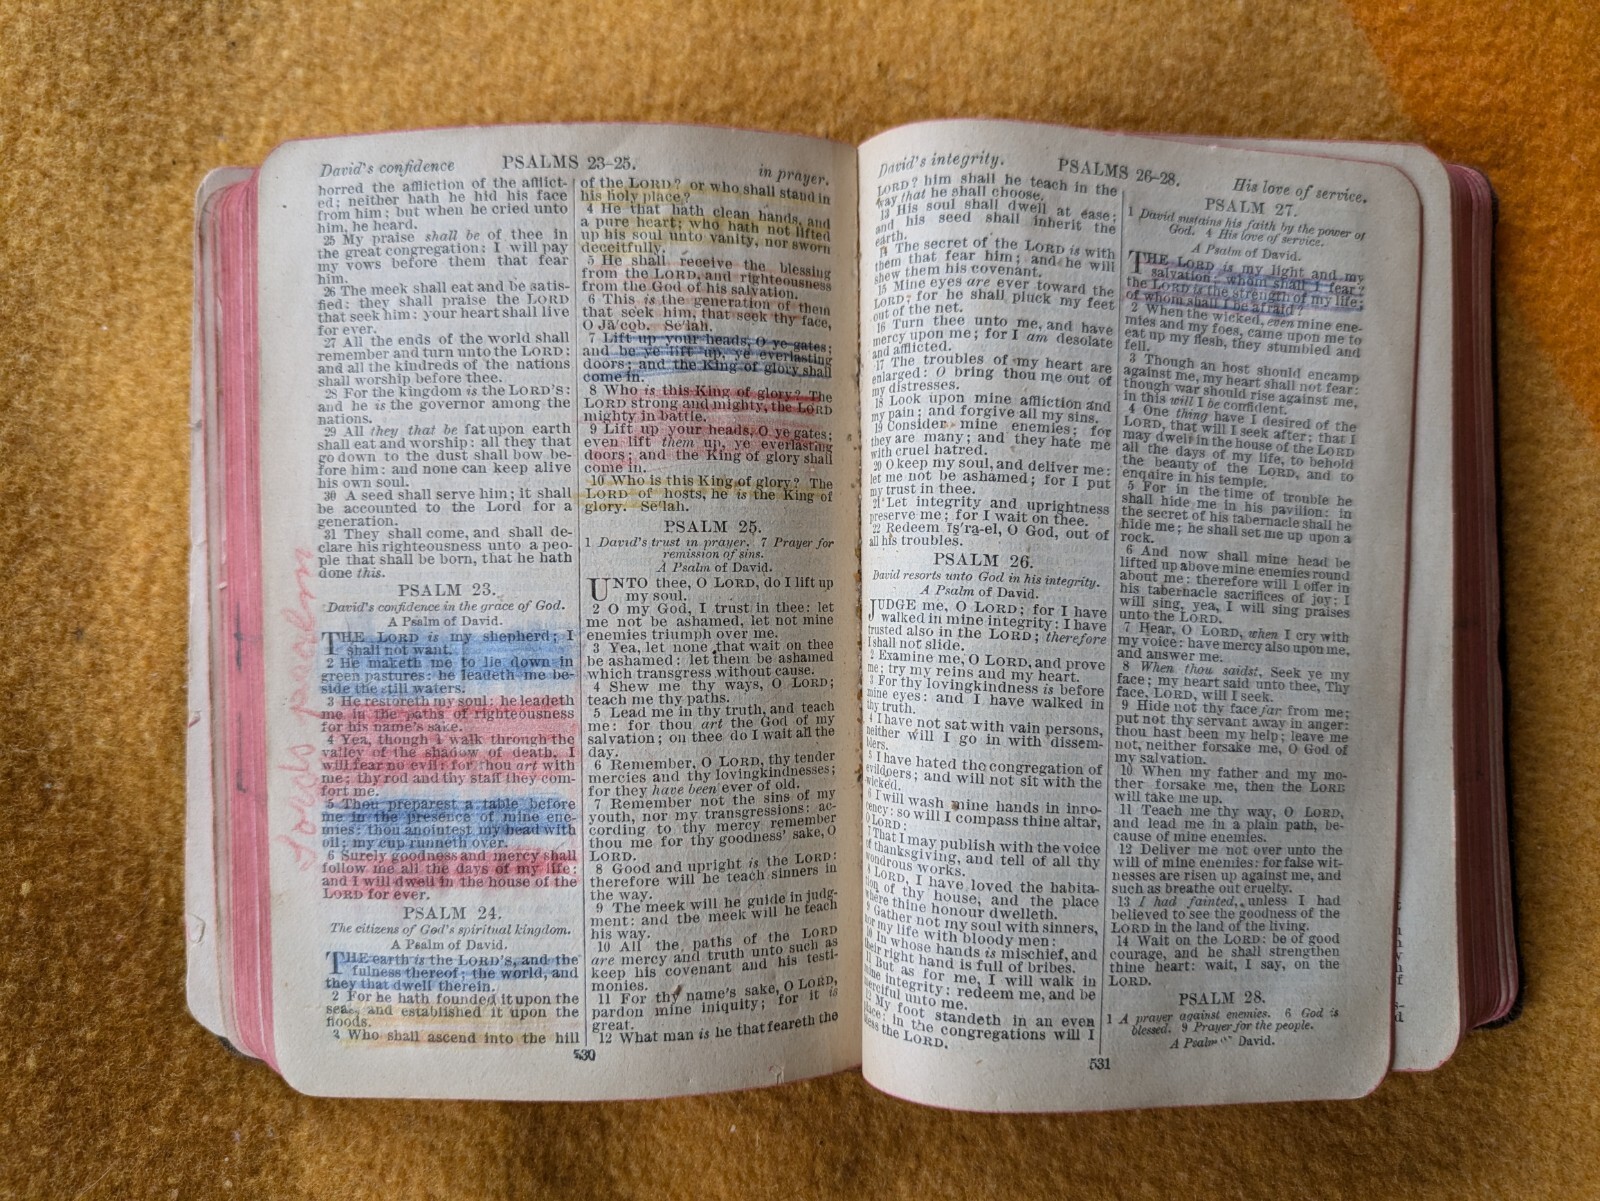 David's confidence PSALMS 23-25. in prayer.
horred the affliction of the afflict-
ed; neither hath he hid his face
from him; but when he cried unto
him, he heard.
25 My praise shall be of thee in
the great congregation: I will pay
my vows before them that fear
him.
26 The meek shall eat and be satis-
fied: they shall praise the LORD
that seek him: your heart shall live
for ever.
27 All the ends of the world shall
remember and turn unto the LORD:
and all the kindreds of the nations
shall worship before thee.
28 For the kingdom is the LORD'S:
and he is the governor among the
nations.
29 All they that be fat upon earth
shall eat and worship: all they that
go down to the dust shall bow be-
fore him: and none can keep alive
his own soul.
30 A seed shall serve him; it shall
be accounted to the Lord for a
generation.
31 They shall come, and shall de-
clare his righteousness unto a peo-
ple that shall be born, that he hath
done this.
PSALM 23.
David's confidence in the grace of God.
A Psalm of David.
THE LORD is my shepherd; I
shall not want.
2 He maketh me to lie down in
green pastures: he leadeth me be-
side the still waters.
3 He restoreth my soul: he leadeth
me in the paths of righteousness
for his name's sake.
4 Yea, though I walk through the
valley of the shadow of death, I
will fear no evil: for thou art with
me; thy rod and thy staff they com-
fort me.
5 Thou preparest a table before
me in the presence of mine ene-
mies: thou anointest my head with
oil; my cup runneth over.
6 Surely goodness and mercy shall
follow me all the days of my life:
and I will dwell in the house of the
LORD for ever.
PSALM 24.
The citizens of God's spiritual kingdom.
A Psalm of David.
THE earth is the LORD'S, and the
fulness thereof; the world, and
they that dwell therein.
2 For he hath founded it upon the
seas, and established it upon the
floods.
3 Who shall ascend into the hill
Lords psalm
of the LORD? or who shall stand in
his holy place?
4 He that hath clean hands, and
a pure heart; who hath not lifted
up his soul unto vanity, nor sworn
deceitfully.
5 He shall receive the blessing
from the LORD, and righteousness
from the God of his salvation.
6 This is the generation of them
that seek him, that seek thy face,
O Jā'cọb. Se'lah.
7 Lift up your heads, O ye gates;
and be ye lift up, ye everlasting
doors; and the King of glory shall
come in.
8 Who is this King of glory? The
LORD strong and mighty, the LORD
mighty in battle.
9 Lift up your heads, O ye gates;
even lift them up, ye everlasting
doors; and the King of glory shall
come in.
10 Who is this King of glory? The
LORD of hosts, he is the King of
glory. Se'lah.
PSALM 25.
1 David's trust in prayer. 7 Prayer for
remission of sins.
A Psalm of David.
UNTO thee, O LORD, do I lift up
my soul.
2 O my God, I trust in thee: let
me not be ashamed, let not mine
enemies triumph over me.
3 Yea, let none that wait on thee
be ashamed: let them be ashamed
which transgress without cause.
4 Shew me thy ways, O LORD;
teach me thy paths.
5 Lead me in thy truth, and teach
me: for thou art the God of my
salvation; on thee do I wait all the
day.
6 Remember, O LORD, thy tender
mercies and thy lovingkindnesses;
for they have been ever of old.
7 Remember not the sins of my
youth, nor my transgressions: ac-
cording to thy mercy remember
thou me for thy goodness' sake, O
LORD.
8 Good and upright is the LORD:
therefore will he teach sinners in
the way.
9 The meek will he guide in judg-
ment: and the meek will he teach
his way.
10 All the paths of the LORD
are mercy and truth unto such as
keep his covenant and his testi-
monies.
11 For thy name's sake, O LORD,
pardon mine iniquity; for it is
great.
12 What man is he that feareth the
530
David's integrity. PSALMS 26-28. His love of service.
LORD? him shall he teach in the
way that he shall choose.
13 His soul shall dwell at ease;
and his seed shall inherit the
earth.
14 The secret of the LORD is with
them that fear him; and he will
shew them his covenant.
15 Mine eyes are ever toward the
LORD; for he shall pluck my feet
out of the net.
16 Turn thee unto me, and have
mercy upon me; for I am desolate
and afflicted.
17 The troubles of my heart are
enlarged: O bring thou me out of
my distresses.
18 Look upon mine affliction and
my pain; and forgive all my sins.
19 Consider mine enemies; for
they are many; and they hate me
with cruel hatred.
20 O keep my soul, and deliver me:
let me not be ashamed; for I put
my trust in thee.
21 Let integrity and uprightness
preserve me; for I wait on thee.
22 Redeem Iş'ra-el, O God, out of
all his troubles.
PSALM 26.
David resorts unto God in his integrity.
A Psalm of David.
JUDGE me, O LORD; for I have
walked in mine integrity: I have
trusted also in the LORD; therefore
I shall not slide.
2 Examine me, O LORD, and prove
me; try my reins and my heart.
3 For thy lovingkindness is before
mine eyes: and I have walked in
thy truth.
4 I have not sat with vain persons,
neither will I go in with dissem-
blers.
5 I have hated the congregation of
evildoers; and will not sit with the
wicked.
6 I will wash mine hands in inno-
cency: so will I compass thine altar,
O LORD:
7 That I may publish with the voice
of thanksgiving, and tell of all thy
wondrous works.
8 LORD, I have loved the habita-
tion of thy house, and the place
where thine honour dwelleth.
9 Gather not my soul with sinners,
nor my life with bloody men:
10 In whose hands is mischief, and
their right hand is full of bribes.
11 But as for me, I will walk in
mine integrity: redeem me, and be
merciful unto me.
12 My foot standeth in an even
place: in the congregations will I
bless the LORD.
PSALM 27.
1 David sustains his faith by the power of
God. 4 His love of service.
A Psalm of David.
THE LORD is my light and my
salvation; whom shall I fear?
the LORD is the strength of my life;
of whom shall I be afraid?
2 When the wicked, even mine ene-
mies and my foes, came upon me to
eat up my flesh, they stumbled and
fell.
3 Though an host should encamp
against me, my heart shall not fear:
though war should rise against me,
in this will I be confident.
4 One thing have I desired of the
LORD, that will I seek after; that I
may dwell in the house of the LORD
all the days of my life, to behold
the beauty of the LORD, and to
enquire in his temple.
5 For in the time of trouble he
shall hide me in his pavilion: in
the secret of his tabernacle shall he
hide me; he shall set me up upon a
rock.
6 And now shall mine head be
lifted up above mine enemies round
about me: therefore will I offer in
his tabernacle sacrifices of joy; I
will sing, yea, I will sing praises
unto the LORD.
7 Hear, O LORD, when I cry with
my voice: have mercy also upon me,
and answer me.
8 When thou saidst, Seek ye my
face; my heart said unto thee, Thy
face, LORD, will I seek.
9 Hide not thy face far from me;
put not thy servant away in anger:
thou hast been my help; leave me
not, neither forsake me, O God of
my salvation.
10 When my father and my mo-
ther forsake me, then the LORD
will take me up.
11 Teach me thy way, O LORD,
and lead me in a plain path, be-
cause of mine enemies.
12 Deliver me not over unto the
will of mine enemies: for false wit-
nesses are risen up against me, and
such as breathe out cruelty.
13 I had fainted, unless I had
believed to see the goodness of the
LORD in the land of the living.
14 Wait on the LORD: be of good
courage, and he shall strengthen
thine heart: wait, I say, on the
LORD.
PSALM 28.
1 A prayer against enemies. 6 God is
blessed. 9 Prayer for the people.
A Psalm of David.
531